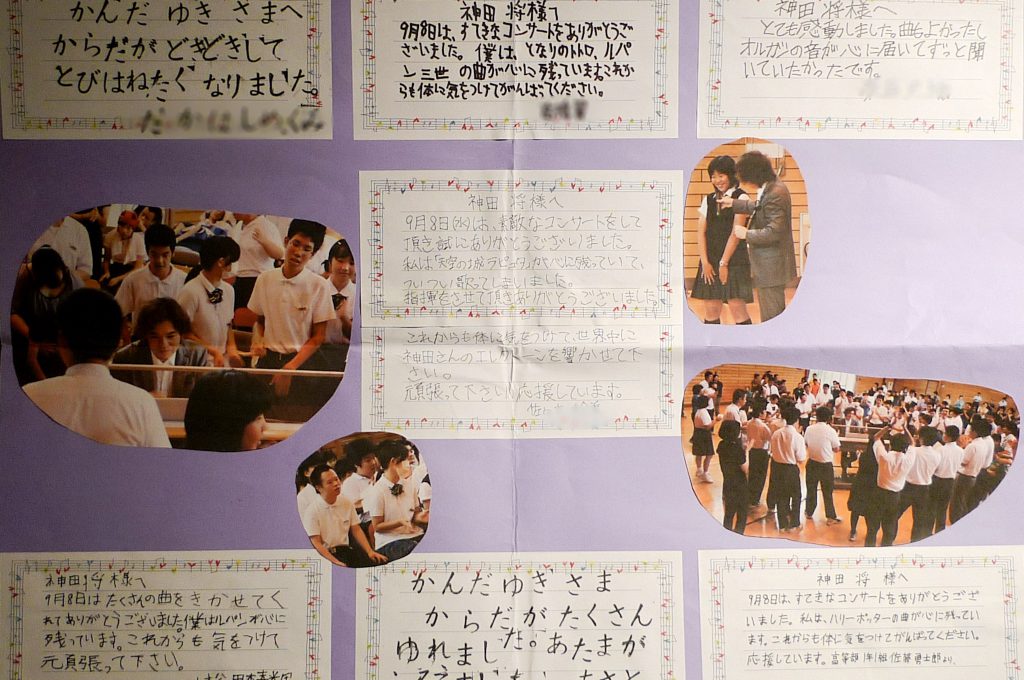 かんだ ゆき さまへ
からだが どきどきして
とびはねたく なりました。
神田 将様へ
9月8日は、すてきなコンサートをありがとうご
ざいました。僕は、となりのトトロ、ルパ
ン三世 の曲が心に残っています。これか
らも体に気をつけてがんばってください。
神田 将様へ
とても感動しました。曲もよかったし
オルガンの音が心に届いてずっと聞
いていたかったです。
神田 将様へ
9月8日(水)は、素敵なコンサートをして
頂き誠にありがとうございました。
私は「天空の城ラピュタ」が心に残っていて、
ついつい歌ってしまいました。
指揮をさせて頂きありがとうございました。
これからも体に気をつけて、世界中に
神田さんのエレクトーンを響かせて下
さい。
頑張って下さい!応援しています。
神田 将 様へ
9月8日はたくさんの曲をきかせてく
れてありがとうございました。僕はルパンが心に
残っています。これからも 気をつけて
元頁張って下さい。
かんだ ゆき さま
からだ が たくさん
ゆれました。あたまが
神田 将 様へ
9月8日は、すてきなコンサートをありがとうござ
いました。私は、ハリーポッターの曲が心に残ってい
ます。これからも体に気をつけてがんばってください。
応援しています。高等部1年1組 佐藤勇士郎より